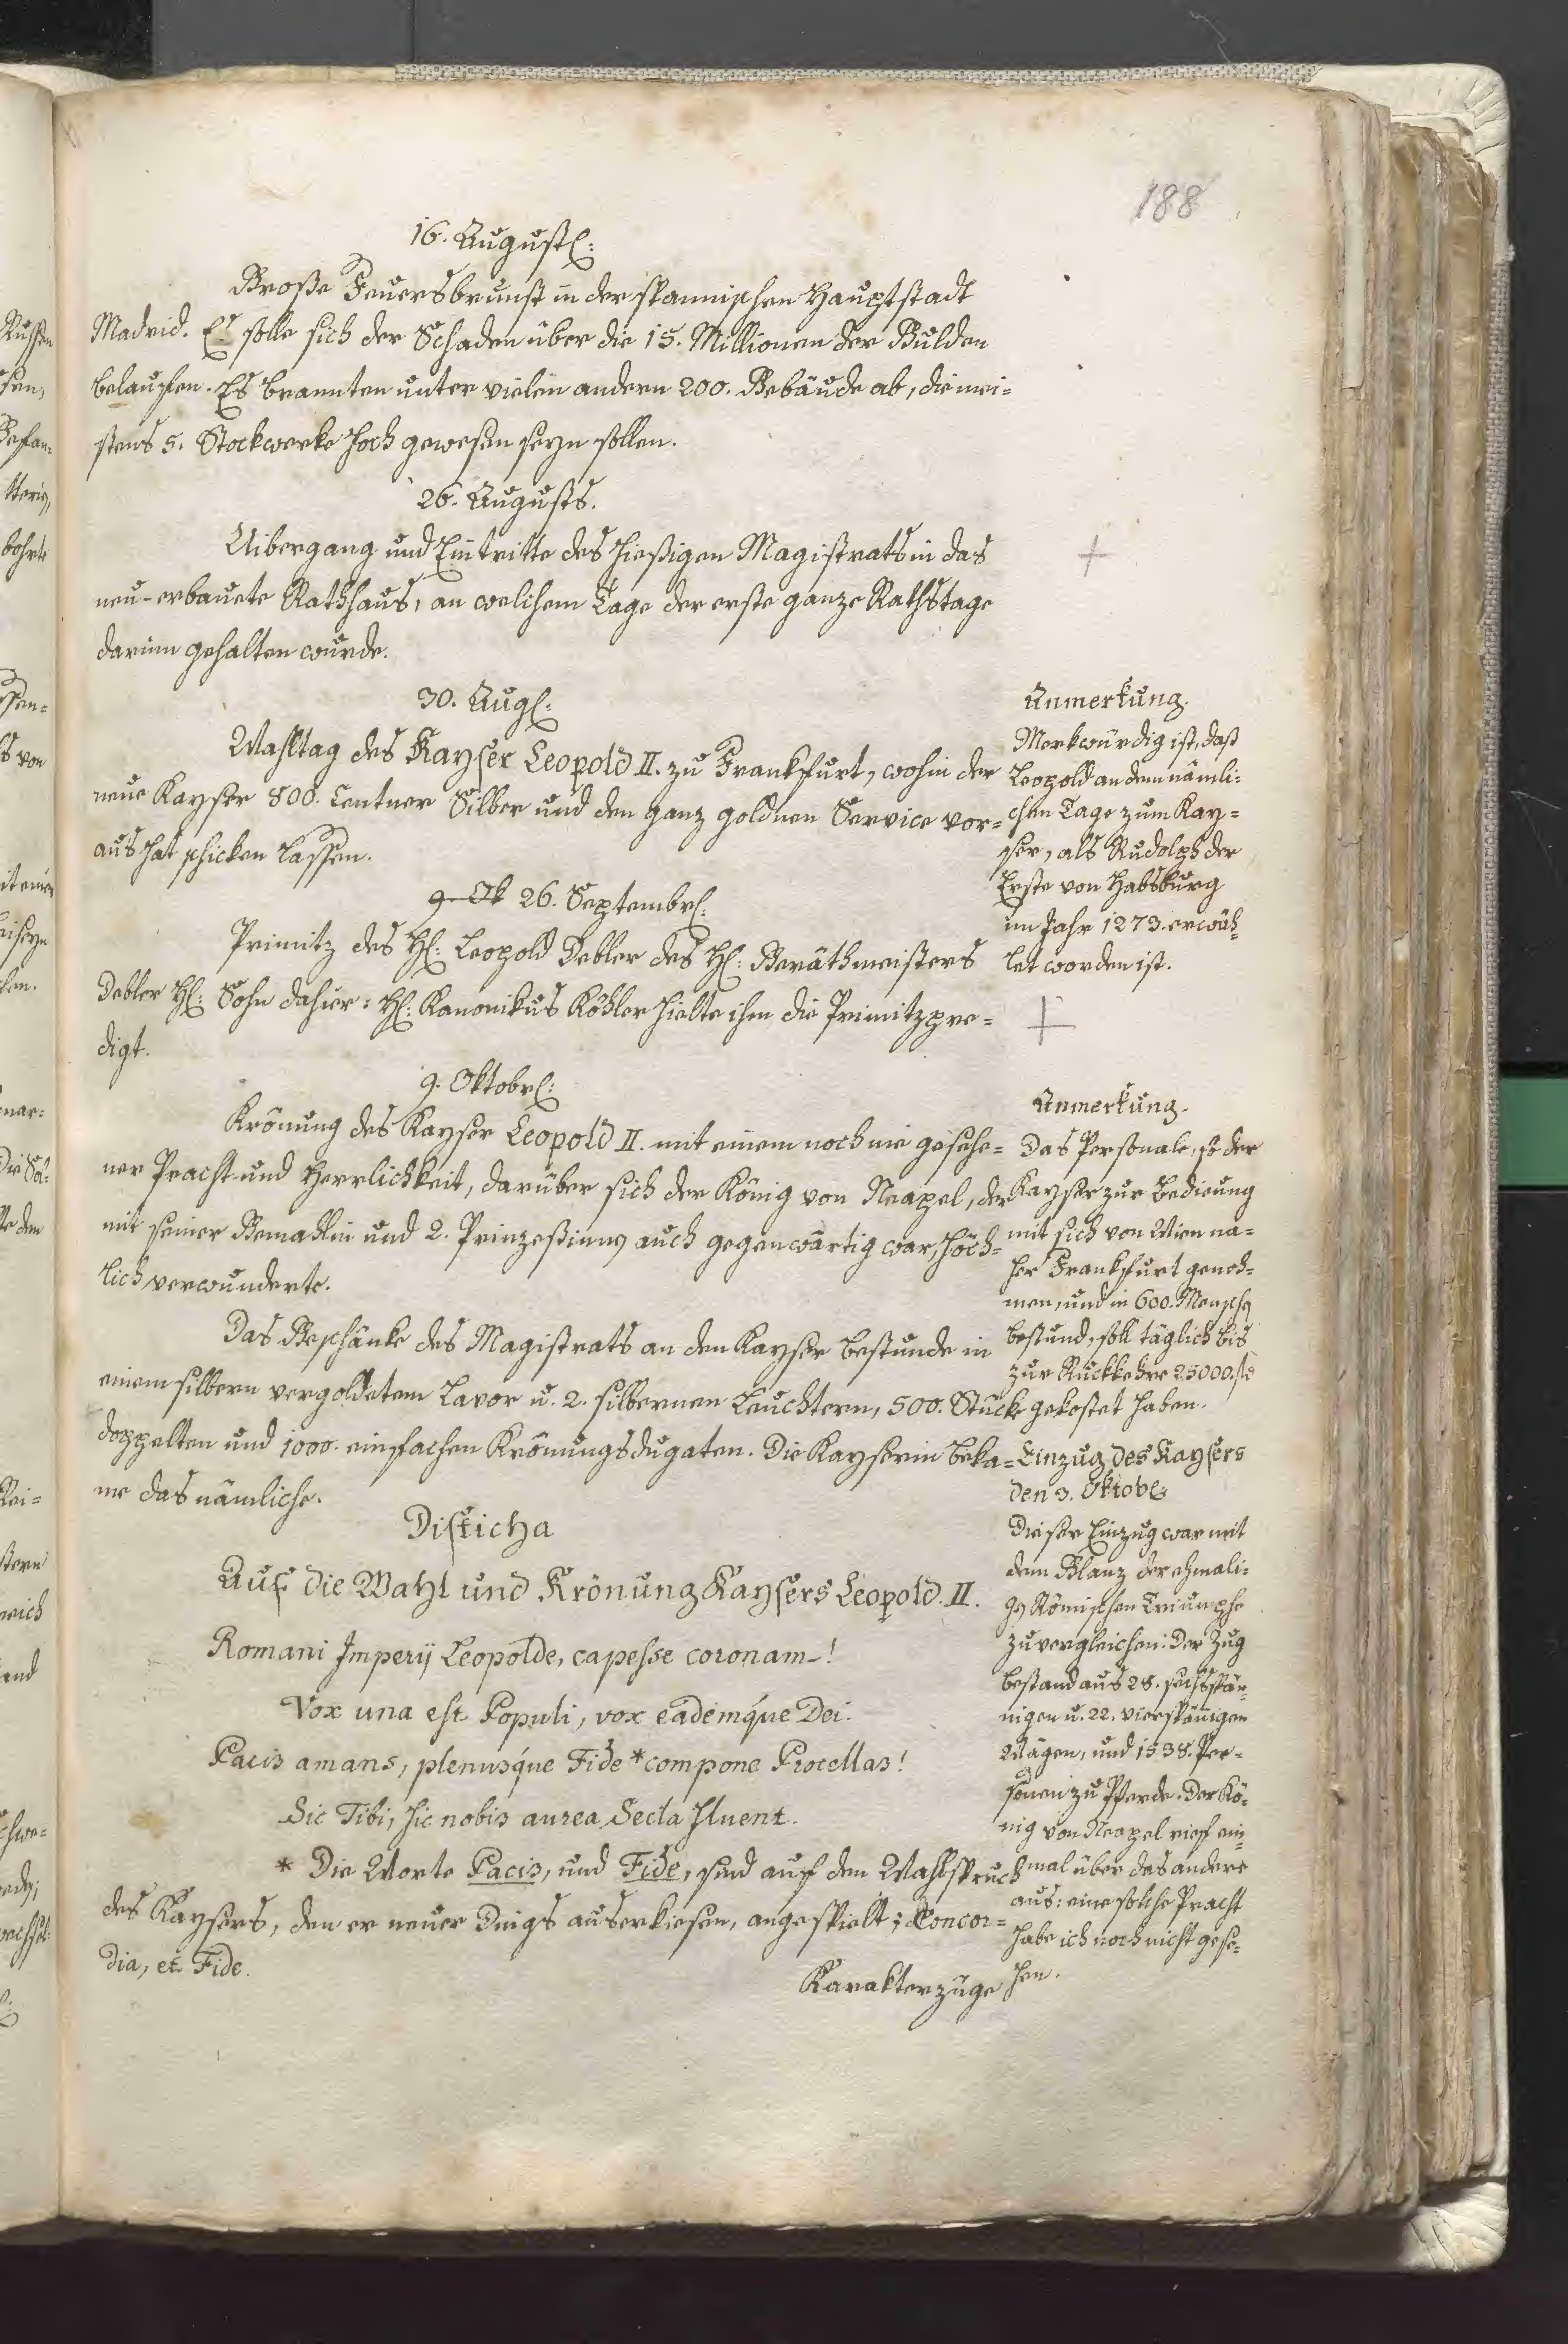 188
16. August:
Große Feuersbrunst in der spannischen Hauptstadt
Madrid. Es solle sich der Schaden über die 15. Millionen der Gulden
belaufen. Es brannten unter vielen andern 200. Gebäude ab, die mei=
stens 5. Stockwerke hoch gewesen seyn sollen.
26. Augusts.
Uibergang und Eintritte des hießigen Magistrats in das
neu-erbauete Rathhaus, an welchem Tage der erste ganze Rathstage
darinn gehalten wurde.
30. Aug:
Wahltag des Kayser Leopold II. zu Frankfurt, wohin der
neue Kayser 800. Centner Silber und den ganz goldnen Service vor=
aus hat schicken lassen.
Anmerkung.
Merkwürdig ist, daß
Leopold an dem nämli=
chen Tage zum Kay=
ser, als Rudolph der
Erste von Habsburg
im Jahr 1273. erwäh=
let worden ist.
9. Ok 26. Septembr:
Primitz des H: Leopold Debler des H: Geräthmeisters
Debler H: Sohn dahier: H: Kanonikus Köhler hielte ihm die Primitzpre=
digt.
9. Oktobr:
Krönung des Kayser Leopold II. mit einem noch nie gesehe=
ner Pracht und Herrlichkeit, darüber sich der König von Neapel, der
mit seiner Gemahlin und 2. Prinzeßinnen auch gegenwärtig war, höch=
lich verwunderte.
Das Geschänke des Magistrats an den Kayser bestunde in
einem silbern vergoldetem Lavor u. 2. silbernen Leuchtern, 500. Stücke
doppelten und 1000. einfachen Krönungsdugaten. Die Kayserin beka=
me das nämliche.
Anmerkung.
Das Personale, so der
Kayser zur Bedienung
mit sich von Wien na=
her Frankfurt genoh=
men, und in 600. Menschen
bestund, soll täglich bis
zur Rückkehr 25000. fl
gekostet haben.
Einzug des Kaysers
den 3. Oktobr:
Dieser Einzug war mit
dem Glanz der ehmali=
gen Römischen Triumphe
zu vergleichen: Der Zug
bestand aus 28. sechsspän=
nigen u. 22. vierspännigen
Wägen, und 1538. Per=
sonen zu Pferde. Der Kö=
nig von Neapel rief ein=
mal über das andere
aus: eine solche Pracht
habe ich noch nicht gese=
hen.
Disticha
Auf die Wahl und Krönung Kaysers Leopold. II.
Romani Imperij Leopolde, capesse coronam!
Vox una est Populi, vox eademque Dei.
Pacis amans, plenusque Fide * compone Procellas!
Sic Tibi, sic nobis aurea Secla fluent.
* Die Worte Pacis, und Fide, sind auf den Wahlspruch
des Kaysers, den er neuer Dings auserkiesen, angespielt; Concor=
dia, et Fide.
Karakterzüge